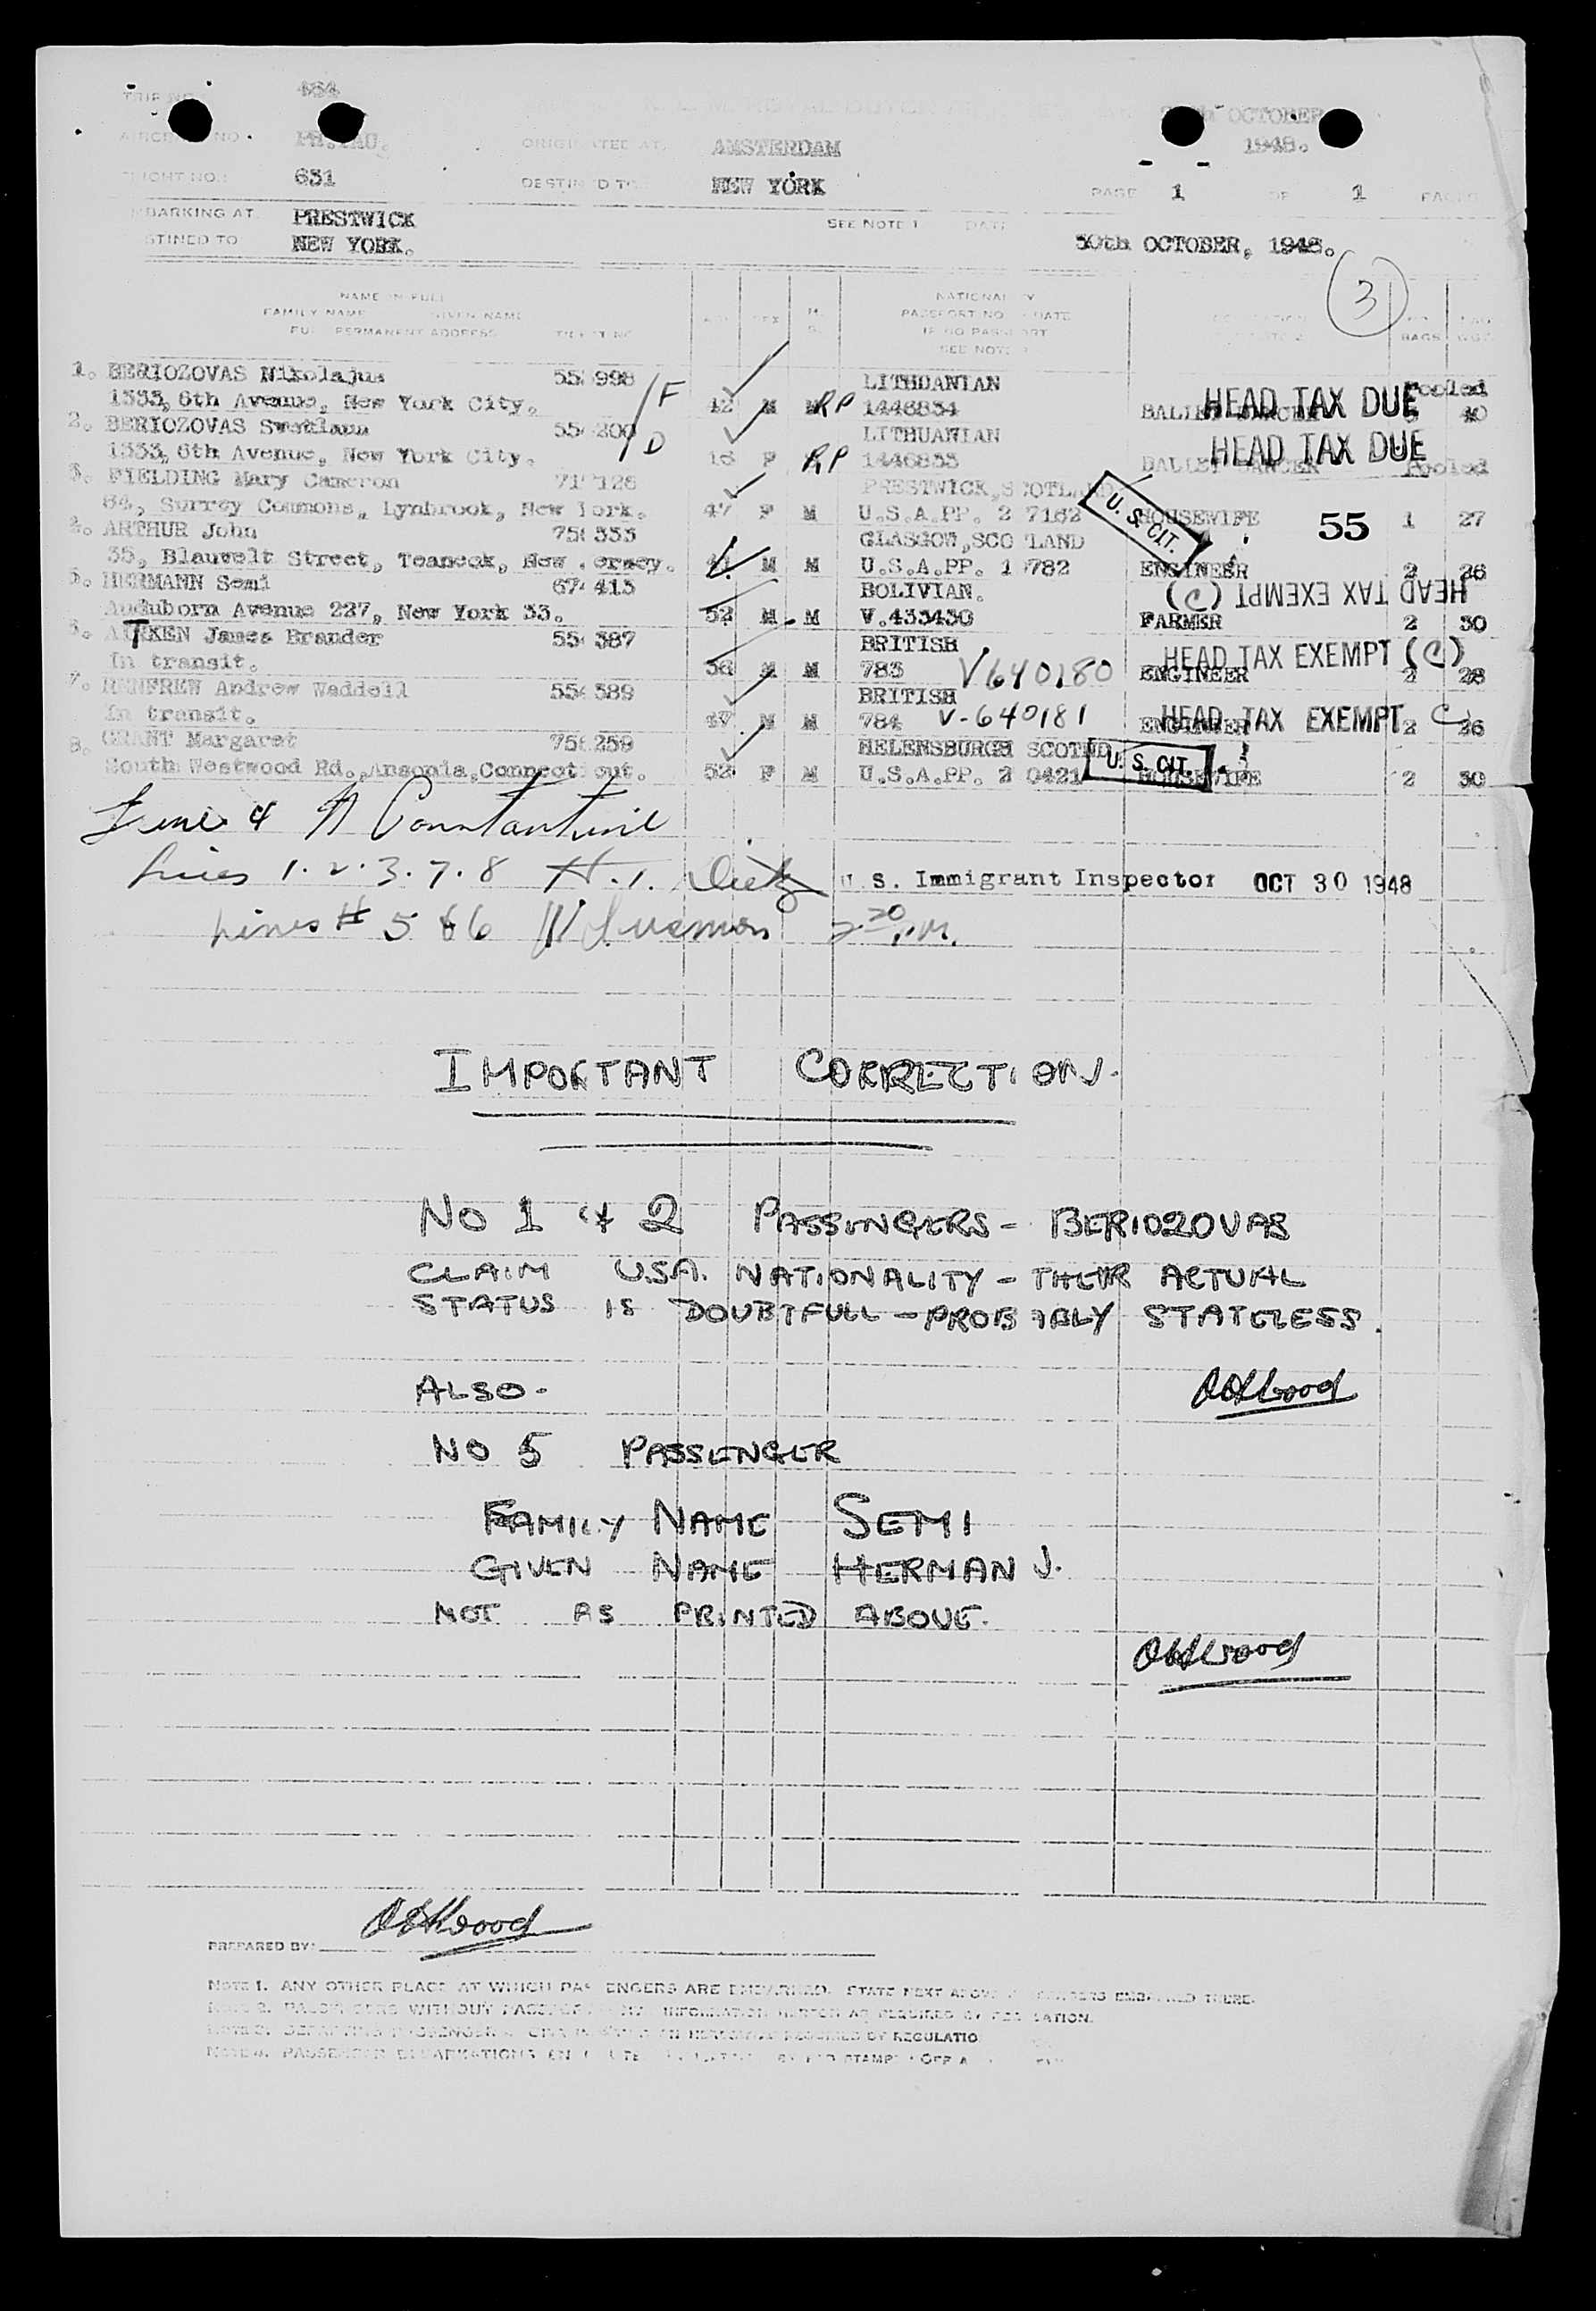 TRIP NO.
K.L.M. ROYAL DUTCH
OCTOBER
1948.
ORIGINATED AT: AMSTERDAM
FLIGHT NO.: 631
DESTINED TO: NEW YORK
PAGE 1 OF 1 PAGES
EMBARKING AT PRESTWICK
SEE NOTE 1 DATE
DESTINED TO NEW YORK.
30th OCTOBER, 1948.
3
NAME IN FULL
FAMILY NAME GIVEN NAME
FULL PERMANENT ADDRESS TICKET NO.
AGE SEX
NATIONALITY
PASSPORT NO. DATE
IF NO PASSPORT
SEE NOTE
BAGS
1. BERIOZOVAS Nikolajus 55 998 LITHUANIAN Pooled
1333, 6th Avenue, New York City. /F 42 M M RP 1446834 BALLET DANCER HEAD TAX DUE 40
2. BERIOZOVAS Swetlana 55 200 LITHUANIAN
1333, 6th Avenue, New York City. /D 16 F RP 1446833 BALLET DANCER HEAD TAX DUE Pooled
3. FIELDING Mary Cameron 71 126 PRESTWICK, SCOTLAND
84, Surrey Commons, Lynbrook, New York. 47 F M U.S.A.PP. 2 7162 U. S. CIT. HOUSEWIFE 55 1 27
4. ARTHUR John 75 333 GLASGOW, SCOTLAND
35, Blauvelt Street, Teaneck, New Jersey. M M U.S.A.PP. 1 782 ENGINEER 2 26
5. HERMANN Semi 67 413 BOLIVIAN. HEAD TAX EXEMPT (C)
Auduborn Avenue 227, New York 33. 52 M M V.433430 FARMER 2 30
6. AITKEN James Brander 55 387 BRITISH HEAD TAX EXEMPT (C)
In transit. 36 M M 783 V640180 ENGINEER 2 28
7. RENFREW Andrew Waddell 55 389 BRITISH
In transit. 47 M M 784 V-640181 ENGINEER HEAD TAX EXEMPT C 2 26
8. GRANT Margaret 75 259 HELENSBURGH SCOTND
South Westwood Rd., Ansonia, Connecticut. 52 F M U.S.A.PP. 2 0421 U. S. CIT. HOUSEWIFE 2 30
Line 4
Lines 1.2.3.7.8 U. S. Immigrant Inspector OCT 30 1948
Lines # 5 & 6 2 20 P.M.
IMPORTANT CORRECTION.
NO 1 & 2 PASSENGERS - BERIOZOVAS
CLAIM U.S.A. NATIONALITY - THEIR ACTUAL
STATUS IS DOUBTFULL - PROBABLY STATELESS.
ALSO -
NO 5 PASSENGER
FAMILY NAME SEMI
GIVEN NAME HERMAN J.
NOT AS PRINTED ABOVE.
PREPARED BY:
NOTE 1. ANY OTHER PLACE AT WHICH PASSENGERS ARE EMBARKED. STATE NEXT ABOVE PASSENGERS EMBARKED THERE.
NOTE 2. PASSENGERS WITHOUT PASSPORT INFORMATION HEREON AS REQUIRED BY REGULATION.
REQUIRED BY REGULATIO